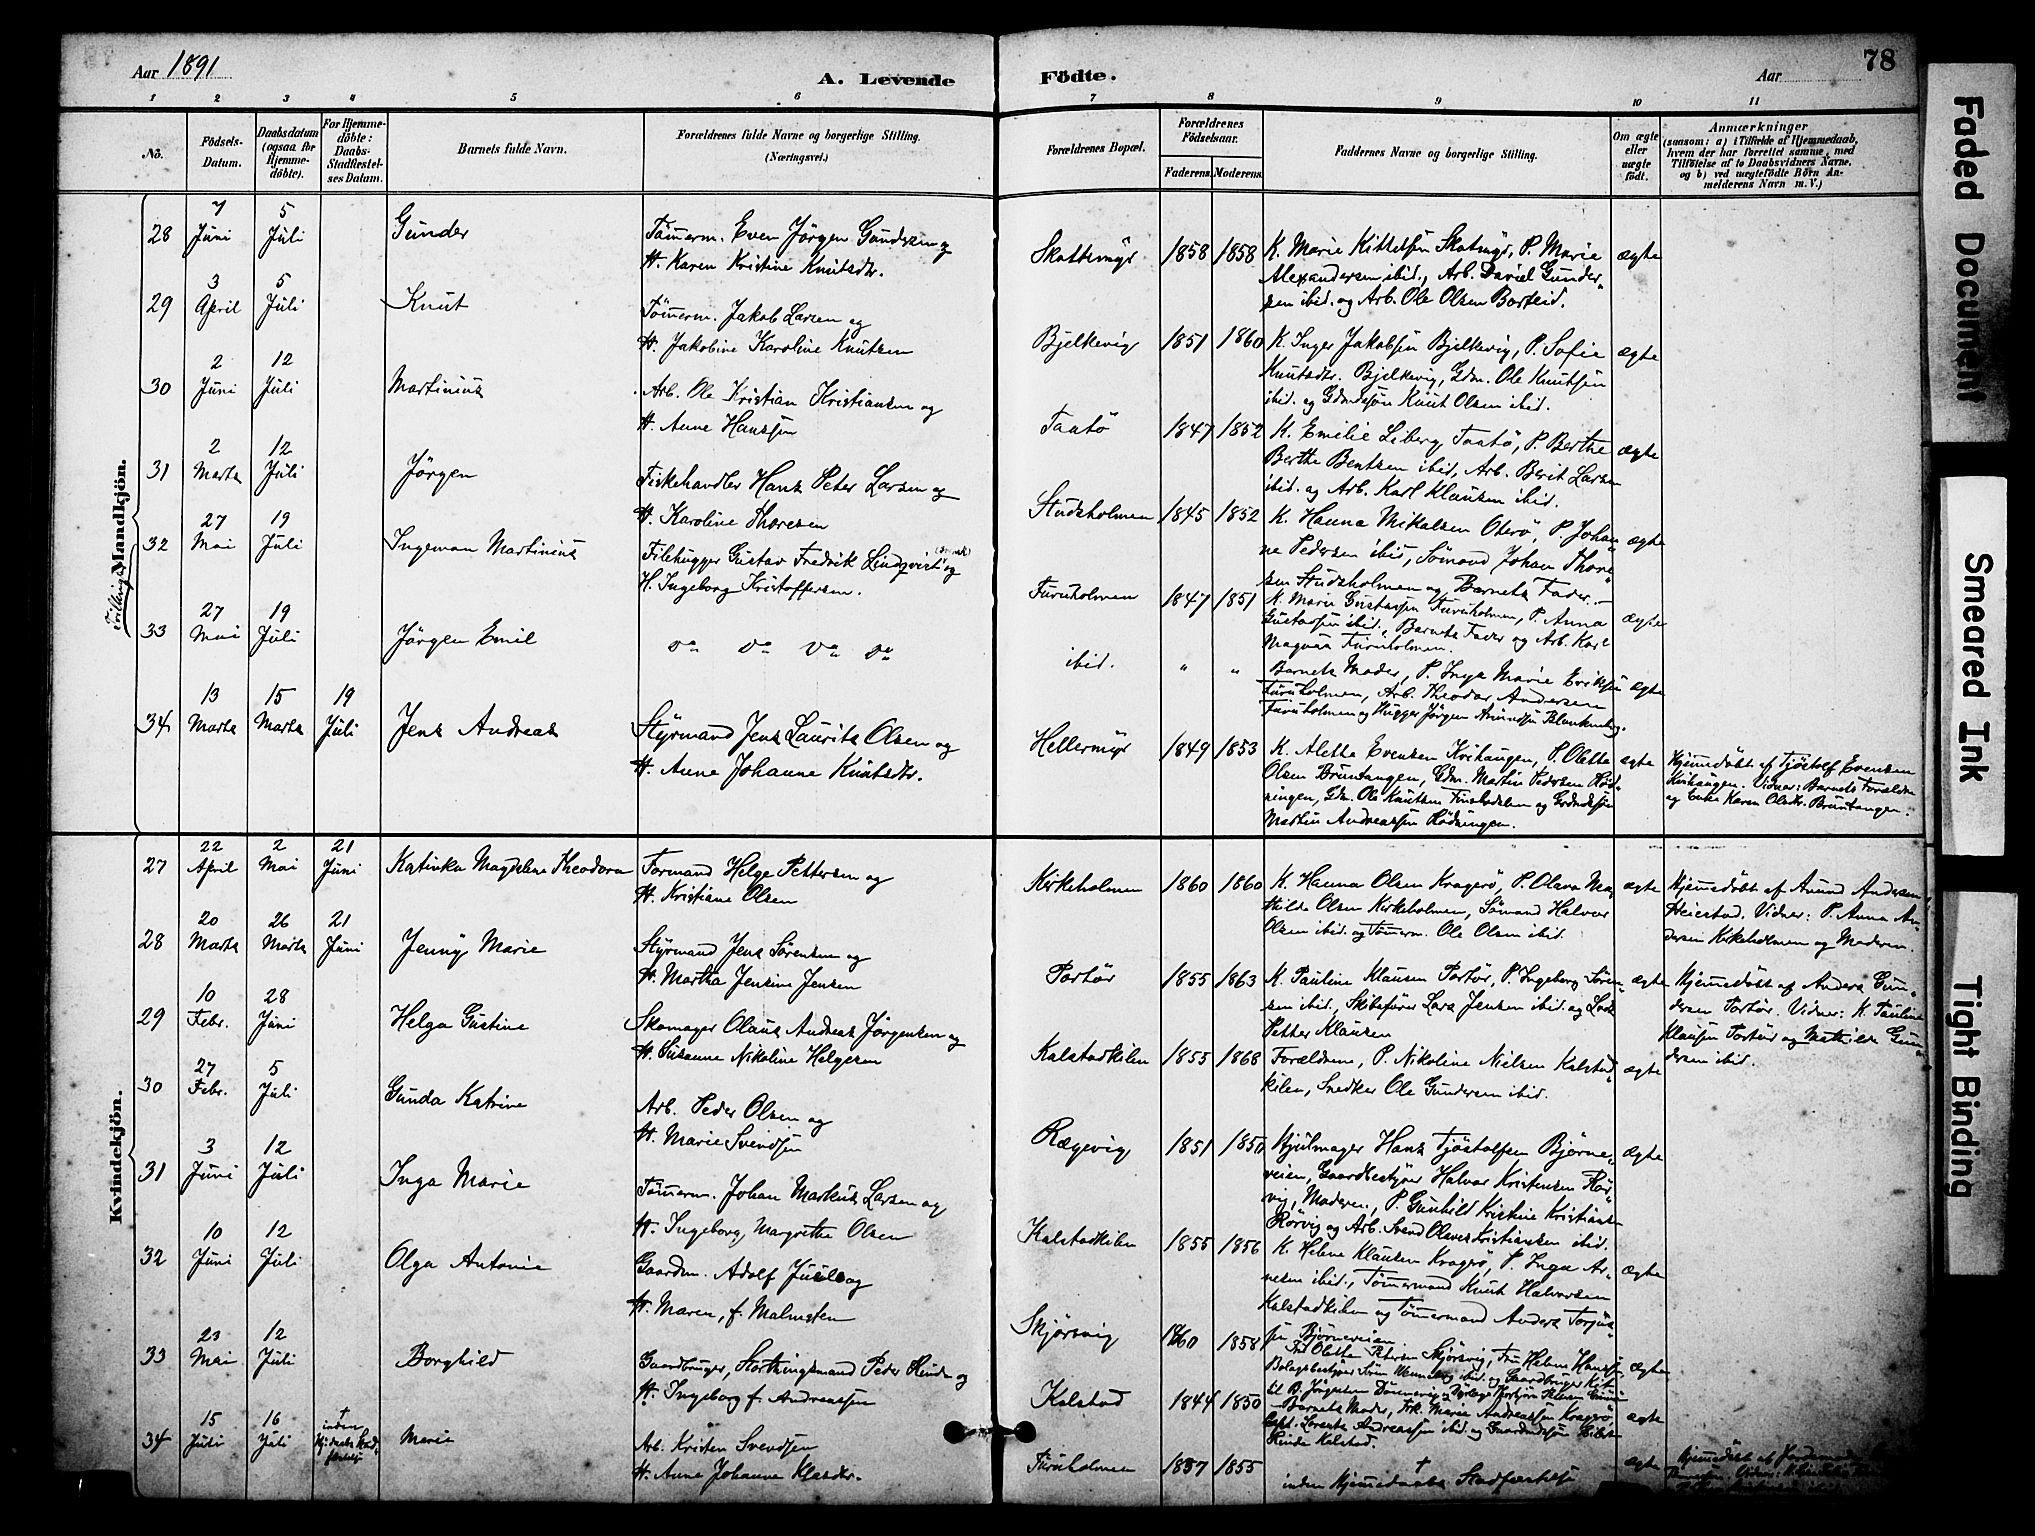 Aar 1891
A. Levende
Födte.
Aar
78
1 2 3 4 5 6 7 8 9 10 11
No.
Födsels-
Datum.
Daabsdatum
(ogsaa for
Hjemme-
döbte).
For Hjemme-
döbte:
Daabs-
Stadfæstel-
ses Datum.
Barnets fulde Navn.
Forældrenes fulde Navne og borgerlige Stilling.
(Næringsvei.)
Forældrenes Bopæl.
Forældrenes
Födselsaar.
Faderens. Moderens.
Faddernes Navne og borgerlige Stilling.
Om ægte
eller
uægte
født.
Anmærkninger
(saasom: a) i Tilfælde af Hjemmedaab,
hvem der har forrettet samme, med
Tilföielse af to Daabsvidners Navne,
og b) ved uægtefödte Börn An-
melderens Navn m. V.)
Mandkjön.
28
7
Juni
5
Juli
Gunder
Tömerm. Even Jörgen Gundersen og
H. Karen Kristine Knutsdtr.
Skottemyr
1858 1858
K. Marie Kittelsen Skotmyr, P. Marie
Alexandersen ibid., Arb. Daniel Gunder-
sen ibid. og Arb. Ole Olsen Borteid.
ægte
29
3
April
5
Juli
Knut
Tömerm. Jakob Larsen og
H. Jakobine Karoline Knutsen
Bjelkevig
1851 1860
K. Inger Jakobsen Bjelkevig, P. Sofie
Knutsdtr. Bjelkevig, Gdm. Ole Knutsen
ibid. og Gdmdssön Knut Olsen ibid.
ægte
30
2
Juni
12
Juli
Martinius
Arb. Ole Kristian Kristiansen og
H. Anne Hanssen
Taatö
1847 1852
K. Emilie Liberg Taatö, P. Berthe
Berthe Bentsen ibid, Arb. Berit Larsen
ibid. og Arb. Karl Klausen ibid.
ægte
31
2
Marts
12
Juli
Jörgen
Fiskehandler Hans Peter Larsen og
H. Karoline Thoresen
Studsholmen
1845 1852
K. Hanna Mikalsen Oterö, P. Johan-
ne Pedersen ibid, Sömand Johan Thore-
sen Studsholmen og Barnets Fader.
ægte
Tvilling
32
27
Mai
19
Juli
Ingeman Martinius
Filehugger Gustav Fredrik Lindqvist og
H. Ingeborg Kristoffersen.
Furuholmen
1847 1851
K. Marie Gustavsen Furuholmen, P. Anna
Gustavsen ibid., Barnets Fader og Arb. Karl
Magnus Furuholmen.
ægte
33
27
Mai
19
Juli
Jörgen Emil
do do do do
ibid.
" "
Barnets Moder, P. Inga Marie Eriksen
Furuholmen, Arb. Theodor Andersen
Furuholmen og Hugger Jörgen Amundsen
ægte
34
13
Marts
15
Marts
19
Juli
Jens Andreas
Styrmand Jens Laurits Olsen og
H. Anne Johanne Knutsdtr.
Hellermyr
1849 1853
K. Alette Evensen Kvihaugen, P. Olette
Olsen Bruntangen, Gdm. Martin Pedersen Röd-
ningen, Gdm. Ole Knutsen og Grdmdssön
Martin Andreassen Rödningen.
ægte
Hjemmedöbt af Tjöstolf Evensen
Kvihaugen. Vidner: Barnets Forældre
og Enke Karen Olsdtr. Bruntangen.
Kvindekjön.
27
22
April
2
Mai
21
Juni
Katinka Magdalena Theodora
Formand Helge Pettersen og
H. Kristiane Olsen
Kirkeholmen
1860 1860
K. Hanna Olsen Kragerö, P. Olava Ma-
thilde Olsen Kirkeholmen, Sömand Halvor
Olsen ibid. og Tömerm. Ole Olsen ibid.
ægte
Hjemmedöbt af Amund Andersen
Heiestad. Vidner: P. Anna An-
dersen Kirkeholmen og Moderen.
28
20
Marts
26
Marts
21
Juni
Jenny Marie
Styrmand Jens Sörensen og
H. Martha Jensine Jensen
Portör
1855 1863
K. Pauline Klausen Portör, P. Ingeborg Sören-
sen ibid., Skibsförer Lars Jensen ibid. og Lods
Petter Klausen
ægte
Hjemmedöbt af Anders Gun-
dersen Portör. Vidner: K. Pauline
Klausen Portör og Mathilde Gun-
dersen ibid.
29
10
Febr.
28
Juni
Helga Gustine
Skomager Olaus Andreas Jörgensen og
H. Susanne Nikoline Helgesen
Kalstadkilen
1855 1868
Forældrene, P. Nikoline Nielsen Kalstad-
kilen, Snedker Ole Gundersen ibid.
ægte
30
27
Febr.
5
Juli
Gunda Katrine
Arb. Peder Olsen og
H. Marie Svendsen
Rægevig
1851 1850
Hjulmager Hans Tjöstolfsen Björne-
veien, Gaardbestyrer Halvor Kristensen Rör-
vig, Moderen, P. Gunhild Kristine Kristians-
Rörvig og Arb. Svend Olaves Kristiansen ibid.
ægte
31
3
Juni
12
Juli
Inga Marie
Tömerm. Johan Markus Larsen og
H. Ingeborg Margrethe Olsen
Kalstadkilen
1855 1856
K. Helene Klausen Kragerö, P. Inga Ar-
nesen ibid., Tömermand Knut Halvorsen
Kalstadkilen og Tömermand Anders Torjus-
sen Björneveien.
ægte
32
10
Juni
12
Juli
Olga Antonie
Gaardm. Adolf Juul og
H. Maren, f. Malmsten
Skjörsvig
1860 1858
Fru Olette Petersen Skjörsvig, Fru Helene Hanssen
ægte
33
23
Mai
12
Juli
Borghild
Gaardbruger, Storthingsmand Peder Rinde og
H. Ingeborg f. Andreassen
Kalstad
1844 1850
Barnets Moder, Frk. Marie Andreassen Kragerö,
Capt. Lorents Andreassen ibid. og Gaardmdssön
Rinde Kalstad.
ægte
34
15
Juli
16
Juli
†
inden
Marie
Arb. Kristen Svendsen
H. Anne Johanne Klasdtr.
Furuholmen
1857 1855
†
inden Hjemmedaabs Stadfæstelse
ægte
Hjemmedöbt af
Faded Document
Smeared Ink
Tight Binding